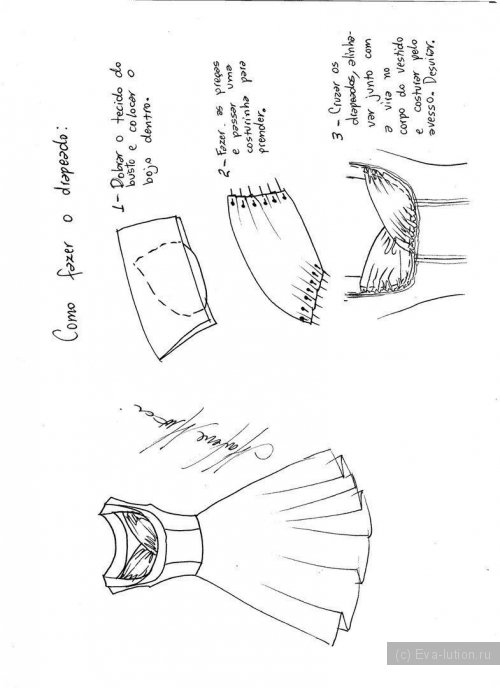 Como fazer o drapeado:
1 - Dobrar o tecido do
busto e colocar o
bojo dentro.
2 - Fazer as pregas
e passar uma
costurinha para
prender.
3 - Cruzar os
drapeados, alinha-
var junto com
a vira no
corpo do vestido
e costurar pelo
avesso. Desvirar.
(c) Eva-lution.ru